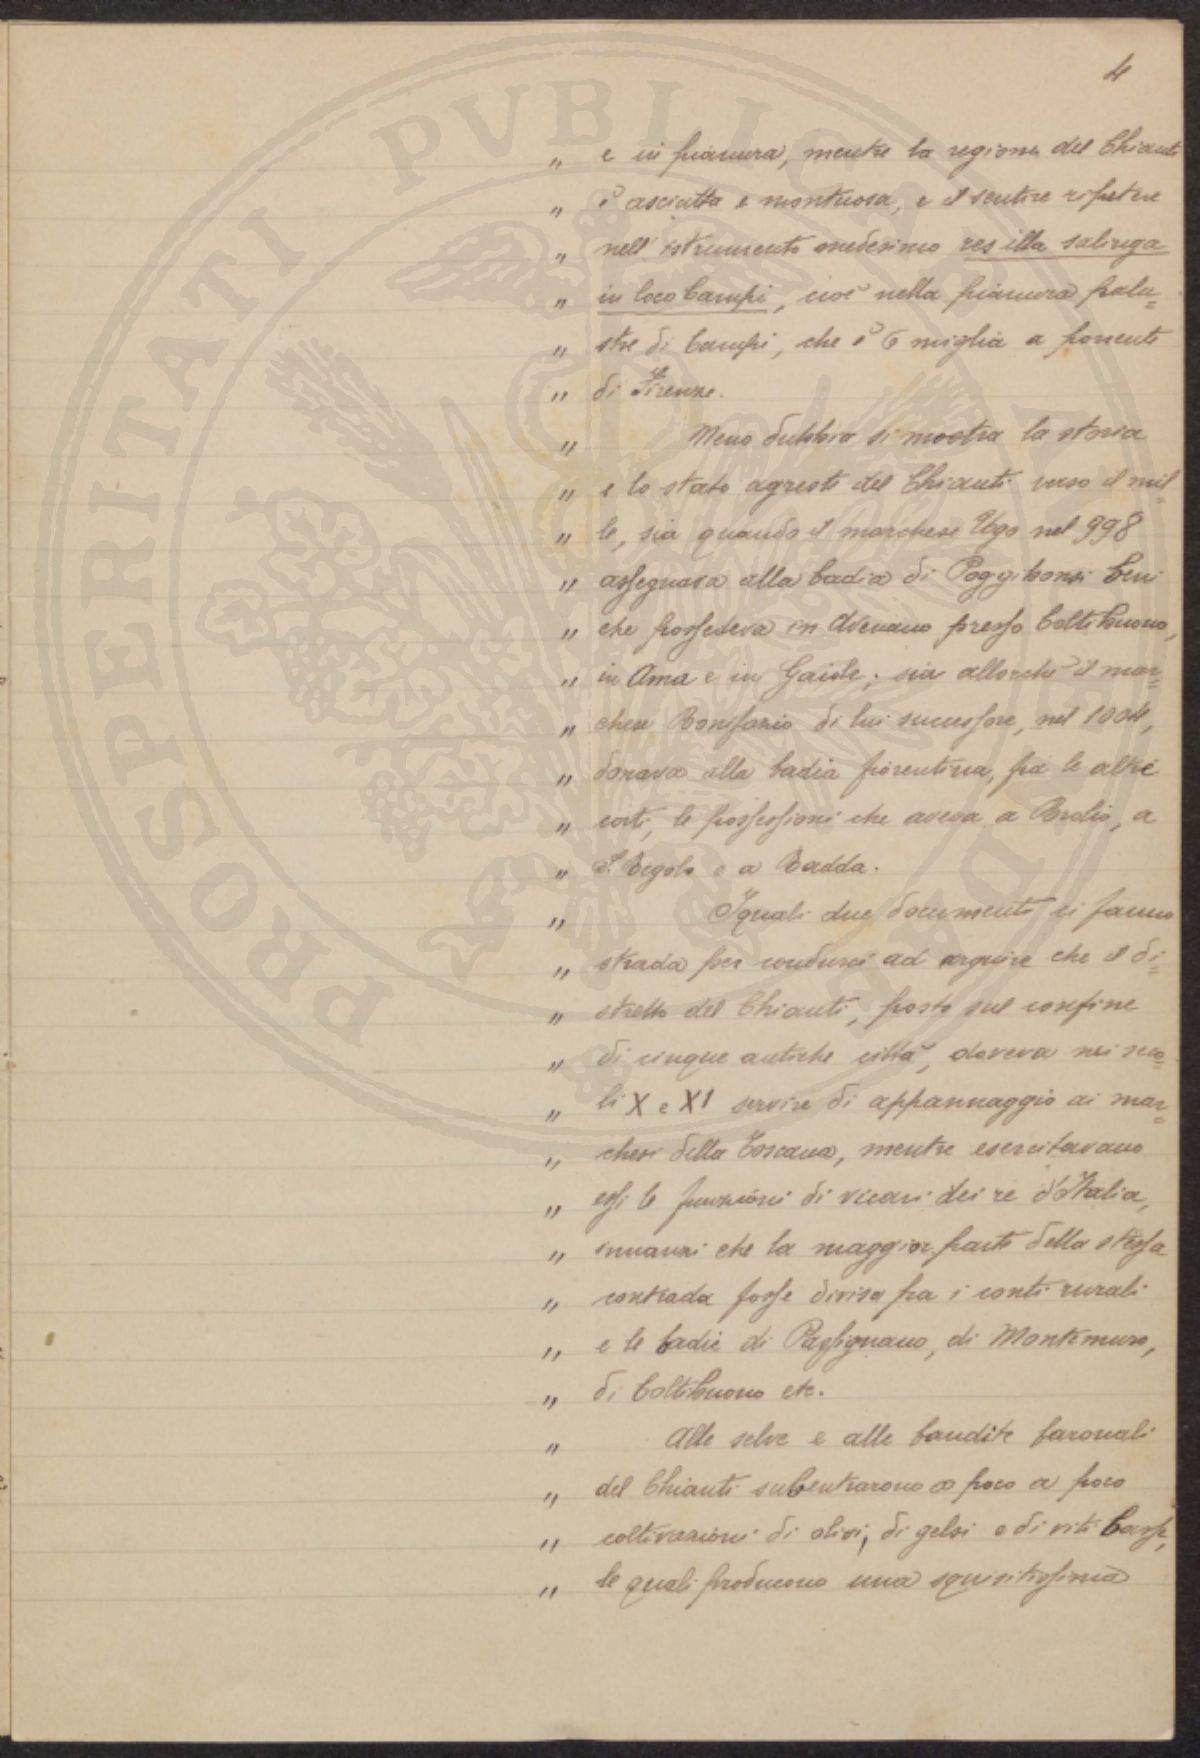 4
" e in pianura, mentre la regione del Chianti
" è asciutta e montuosa, e il sentire ripetere
" nell'istrumento medesimo res illa saliuga
" in loco Campi, cioè nella pianura palu=
" stre di Campi, che è 6 miglia a ponente
" di Firenze.
" Meno dubbia si mostra la storia
" e lo stato agreste del Chianti verso il mil=
" le, sia quando il marchese Ugo nel 998
" assegnava alla badia di Poggibonsi beni
" che possedeva in Avenano presso Coltibuono,
" in Ama e in Gaiole; sia allorchè il mar=
" chese Bonifazio di lui successore, nel 1004,
" donava alla badia fiorentina, fra le altre
" corti, le possessioni che aveva a Brolio, a
" S. Regolo e a Radda.
" I quali due documenti ci fanno
" strada per condurci ad arguire che il di=
" stretto del Chianti, posto sul confine
" di cinque antiche città, doveva nei seco=
" li X e XI servire di appannaggio ai mar=
" chesi della Toscana, mentre esercitavano
" essi le funzioni di vicari dei re d'Italia,
" innanzi che la maggior parte della stessa
" contrada fosse divisa fra i conti rurali
" e le badie di Passignano, di Montemuro,
" di Coltibuono etc.
" Alle selve e alle bandite baronali
" del Chianti subentrarono a poco a poco
" coltivazioni di olivi, di gelsi e di viti basse,
" le quali producono una squisitissima
PROSPERITATI PVBLICAE AVGENDAE